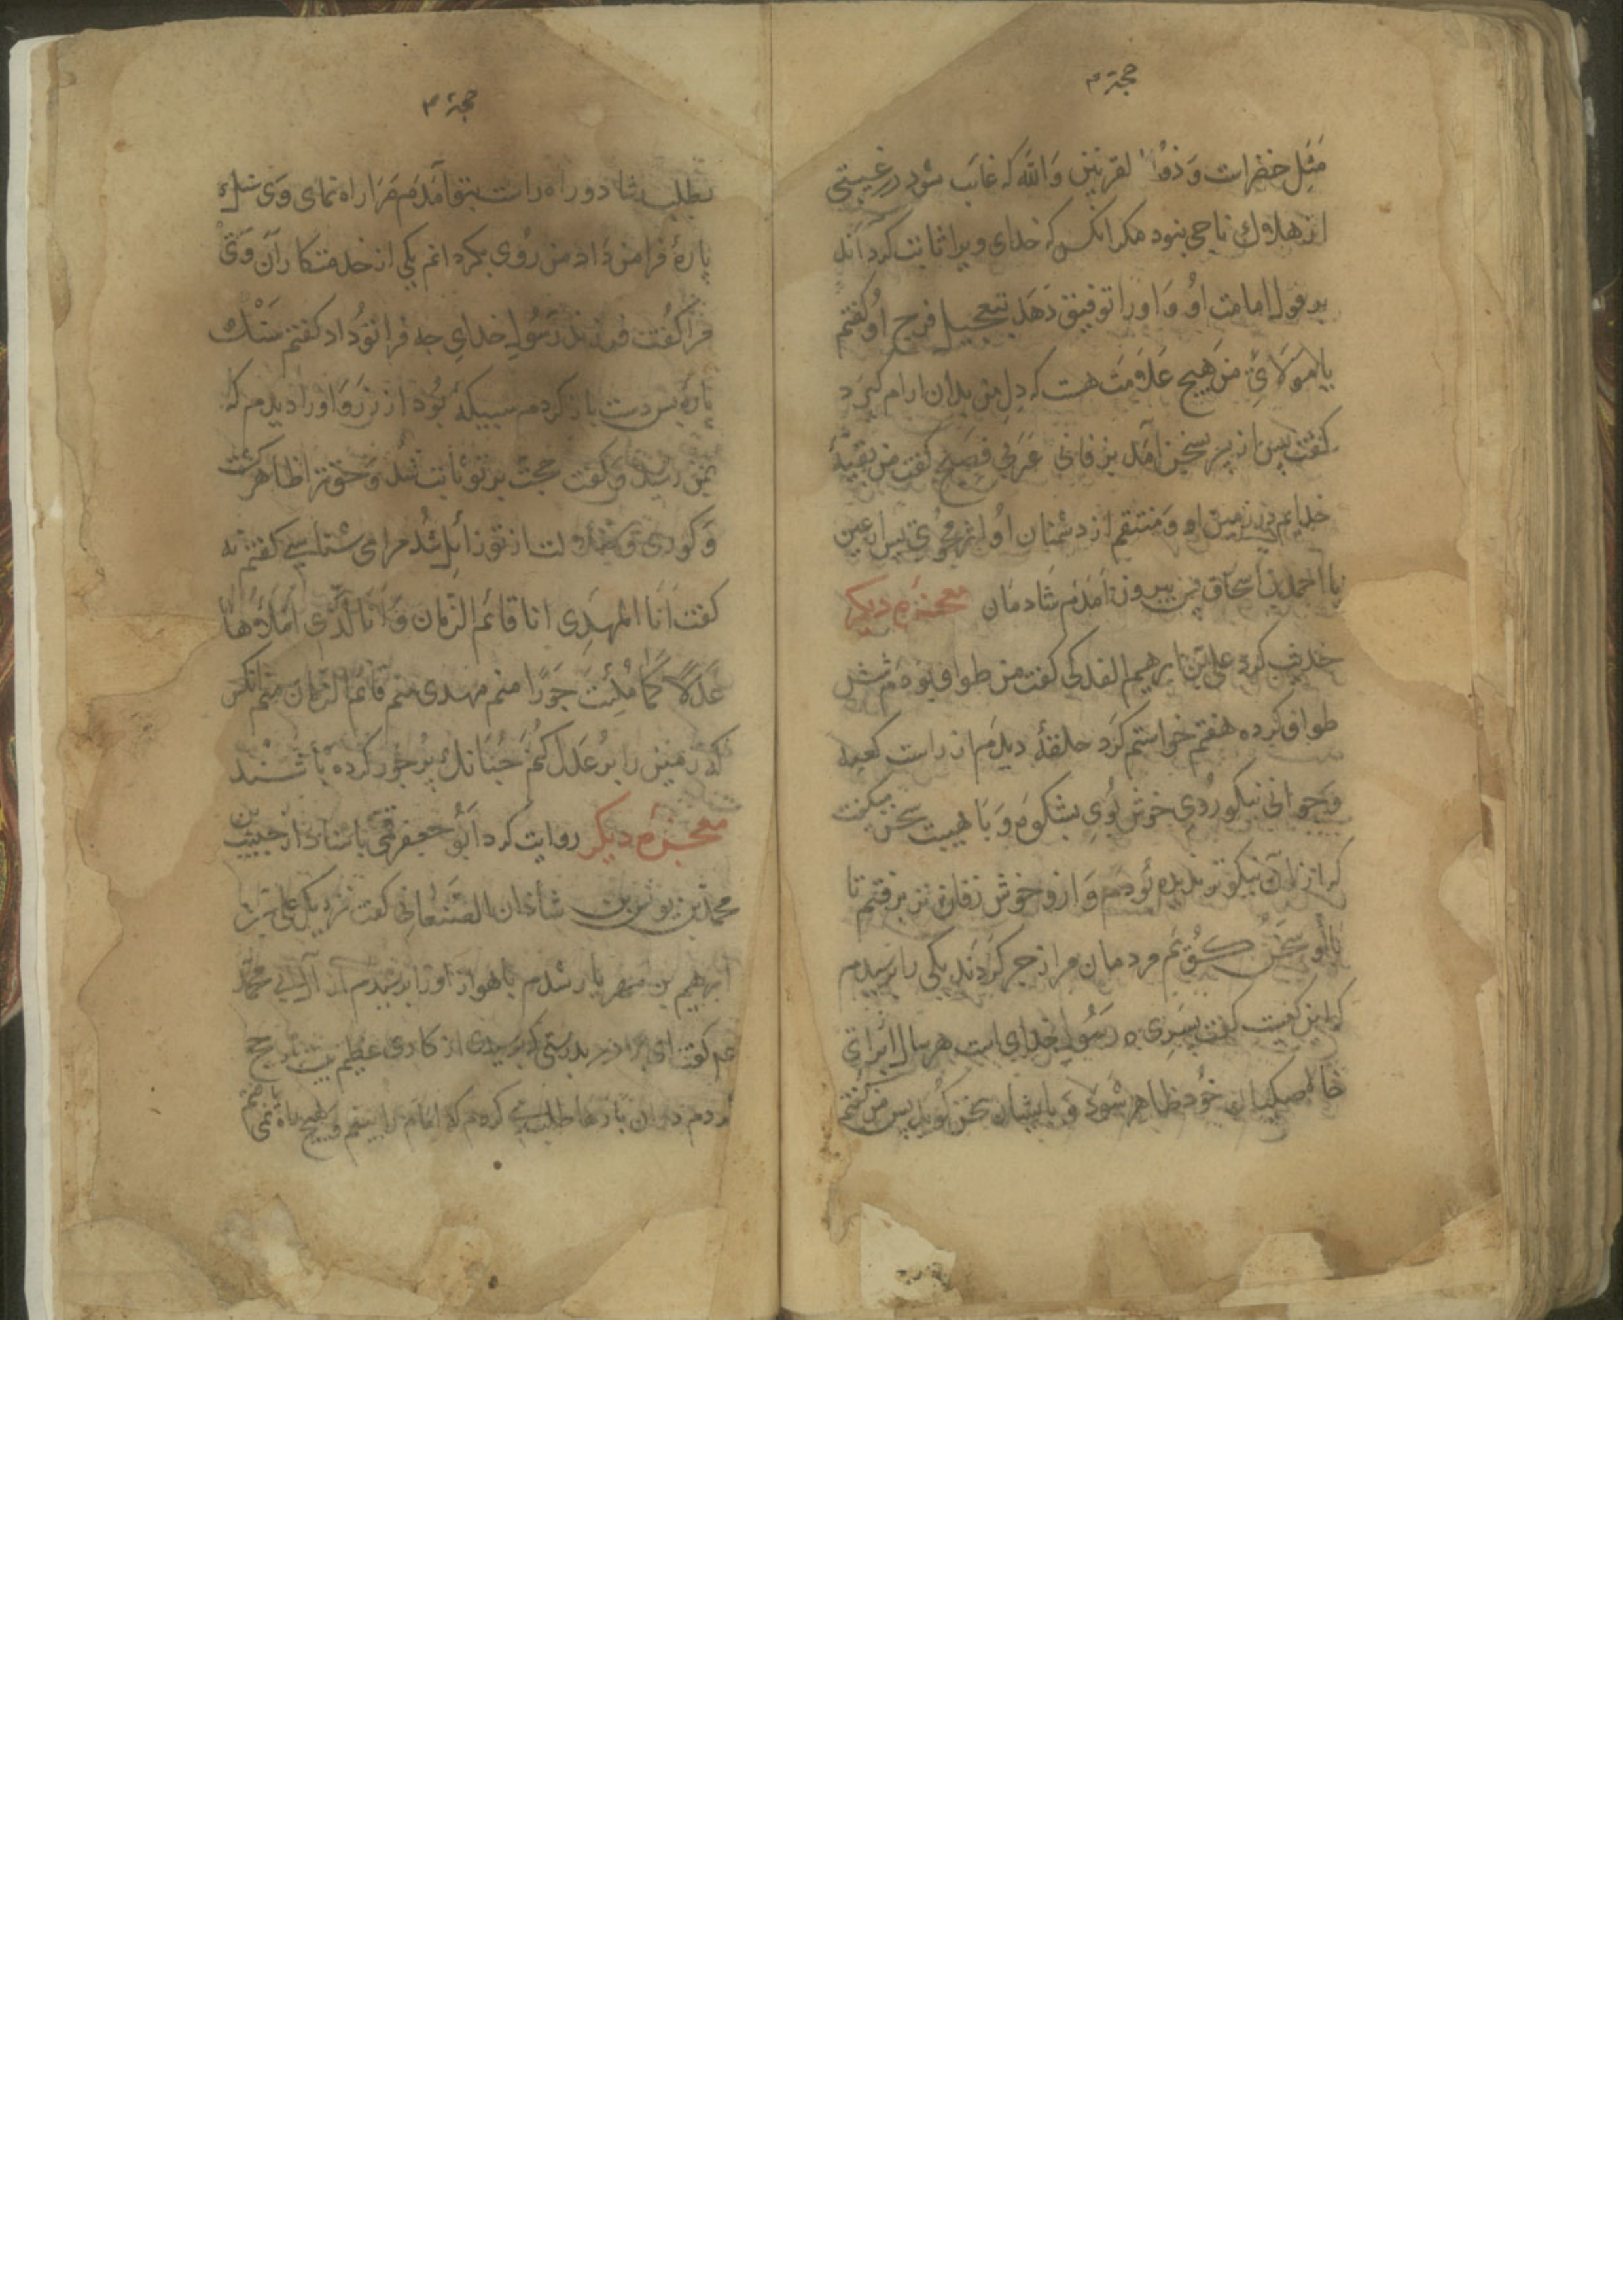 حجة م
مثل خضرات وذو القرنین والله که غایب شود در غیبتی
از هلاک ناجی نبود مکر انکس که خدای ویرا ثابت کرداند
بر قول امامت او و اورا توفیق دهد بتعجیل فرج او کفتم
یا مولای من هیچ علامت هست که دل من بدان ارام کیرد
کفت پس از پسر سخن امد بزفانی عربی فصیح کفت من بقیة
خدایم در زمین او و منتقم از دشمنان او اثر مجوی پس از عین
یا احمد بن اسحاق من بیرون امدم شادمان معجزه دیکر
حدیث کرد علی بن ابرهیم الفدکی کفت من طواف بودم شش
طواف کرده هفتم خواستم کرد حلقهٔ دیدم از راست کعبه
و جوانی نیکو روی خوش بوی بشکوه و با هیبت سخن میکفت
که از ان نیکوتر ندیده بودم و ازو خوش زفان تر برفتم تا
با او سخن کویم مردمان مرا زجر کردند یکی را پرسیدم
که این کیست کفت پسری ه رسول خدای است هر سال از برای
خالصکیان خود ظاهر شود و با یشان سخن کوید پس من کفتم
حجة م
بطلب شاد و راه راست بتو امدم مرا راه نمای وی سنک
پارهٔ فرا من داد من روی بکردانم یکی از خدمتکاران وی
مرا کفت فرزند رسول خدای چه فرا تو داد کفتم سنک
پاره پس دست باز کردم سبیکهٔ بود از زر و اورا دیدم که
بمن رسید و کفت حجت بر تو ثابت شد و حق ترا ظاهر کشت
و کوری و از تو زایل شد مرا می شناسی کفتم نه
کفت انا المهدی انا قائم الزمان و انا الذی املاؤها
عدلا کما ملئت جورا منم مهدی منم قائم الزمان منم انکس
که زمین را پر عدل کنم چنانک پر جور کرده باشند
معجزه دیکر روایت کرد ابو جعفر قمی باسناد از حبیب بن
محمد بن یونس بن شاذان الصنعانی کفت نزدیک علی بن
ابرهیم بن مهریار شدم باهواز اورا پرسیدم از آل ابی محمد
عم کفت ای برادر بدرستی که پرسیدی از کاری عظیم بیست بار حج
کردم در ان بارها طلب می کردم که امام را ببینم و هیچ راه نمی یافتم